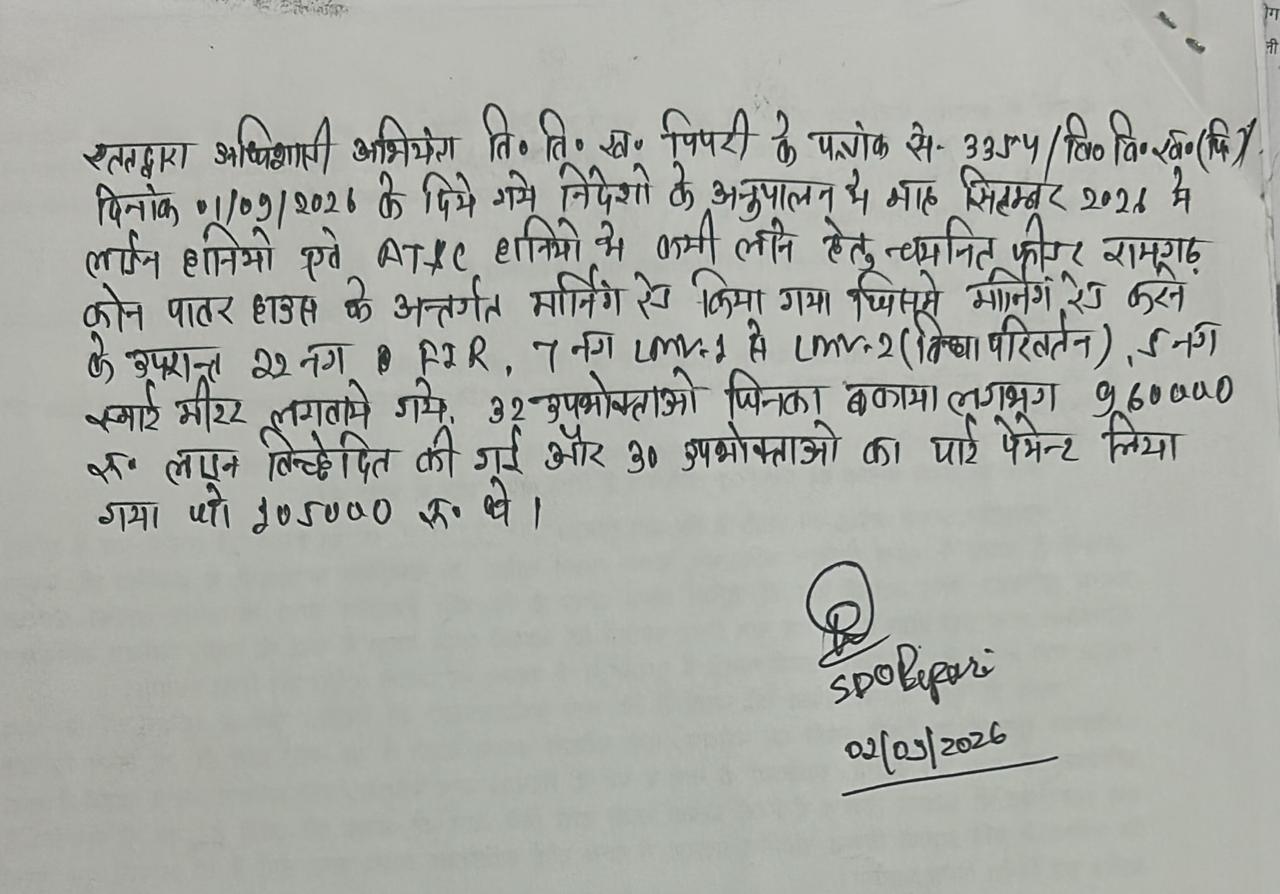 एतद्द्वारा अधिशासी अभियंता वि० वि० ख० पिपरी के पत्रांक सं- 3354/वि० वि० ख० (पि)/
दिनांक 01/09/2026 के दिये गये निर्देशो के अनुपालन मे माह सितम्बर 2026 मे
लाईन हानियो एवं AT&C हानियो मे कमी लाने हेतु चयनित फीडर रामगढ़
कोन पावर हाउस के अन्तर्गत मॉर्निंग रेड किया गया जिसमे मॉर्निंग रेड करने
के उपरान्त 22 नग FIR, 7 नग LMV-1 से LMV-2 (विधा परिवर्तन), 5 नग
स्मार्ट मीटर लगवाये गये, 32 उपभोक्ताओ जिनका बकाया लगभग 960000
रु० लाइन विच्छेदित की गई और 30 उपभोक्ताओ का पार्ट पेमेन्ट लिया
गया जो 105000 रु० थे।
SDO Pipari
02/09/2026